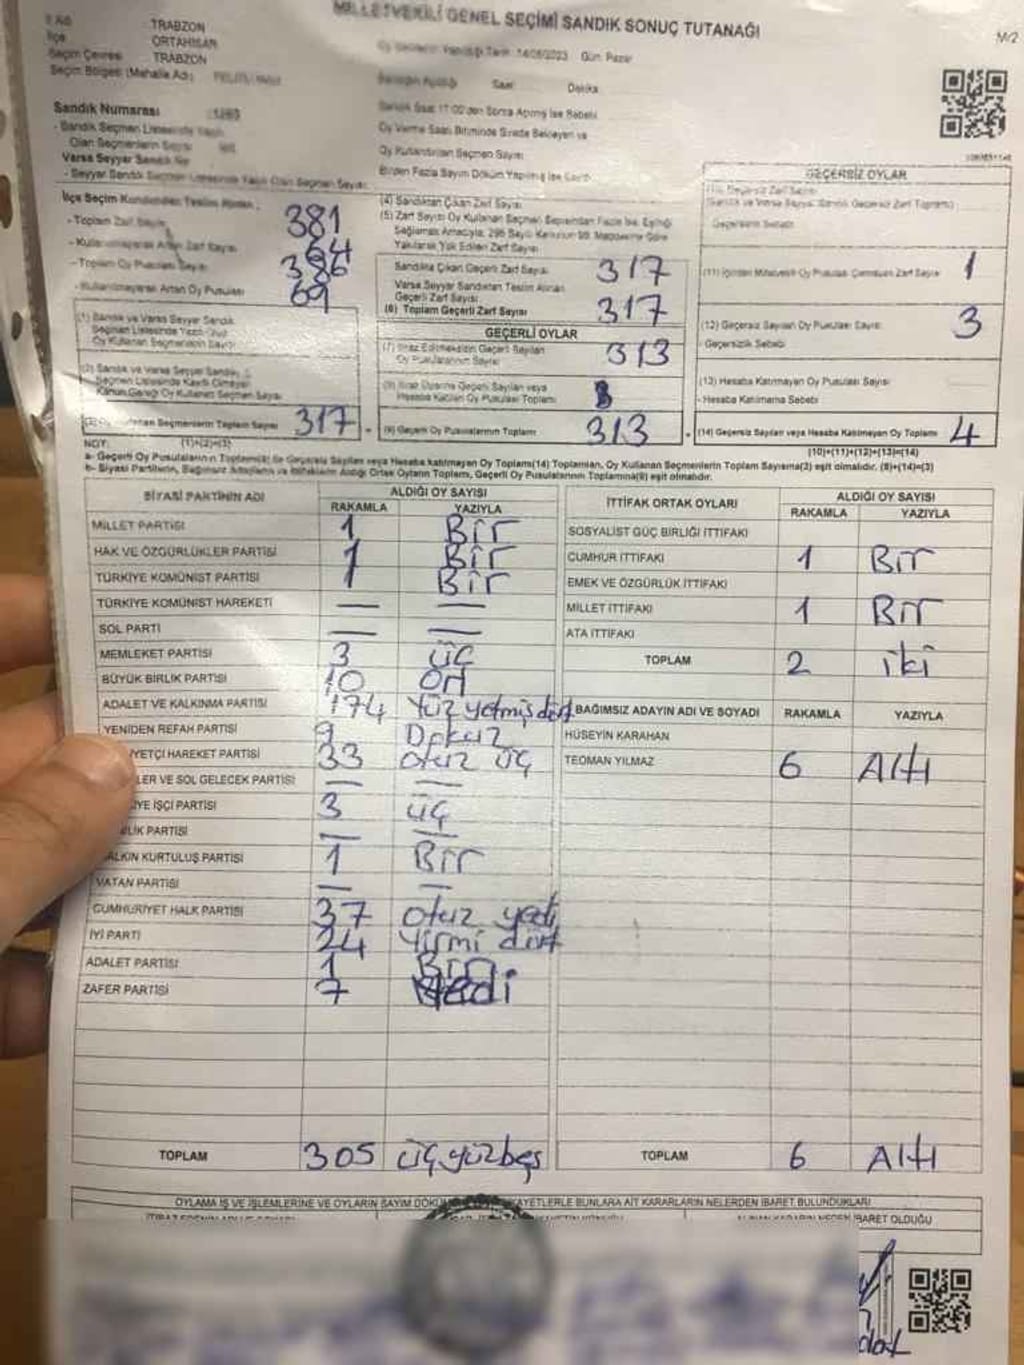 MİLLETVEKİLİ GENEL SEÇİMİ SANDIK SONUÇ TUTANAĞI
TRABZON
İlçe ORTAHİSAR
Seçim Çevresi TRABZON
Seçim Bölgesi (Mahalle Adı)
14/05/2023 Gün: Pazar
Saat: Dakika
Mr2
Sandık Numarası
- Sandık Seçmen Listesinde Yazılı
Olan Seçmenlerin Sayısı
Varsa Seyyar Sandık No
- Seyyar Sandık Seçmen Listesinde Yazılı Olan Seçmen Sayısı
Sandık Saat 17:00'den Sonra Açılmış İse Sebebi
Oy Verme Saati Bitiminde Sırada Bekleyen ve
Oy Kullandırılan Seçmen Sayısı
Birden Fazla Sayım Döküm Yapılmış İse
İlçe Seçim Kurulundan Teslim Alınan
- Toplam Zarf Sayısı 381
- Kullanılmayarak Artan Zarf Sayısı 64
- Toplam Oy Pusulası Sayısı 386
- Kullanılmayarak Artan Oy Pusulası 69
(1) Sandık ve Varsa Seyyar Sandık
Seçmen Listesinde Yazılı Olup
Oy Kullanan Seçmenlerin Sayısı
(2) Sandık ve Varsa Seyyar Sandık
Seçmen Listesinde Kayıtlı Olmayıp
Kanun Gereği Oy Kullanan Seçmen Sayısı
(3) Oy Kullanan Seçmenlerin Toplam Sayısı 317
(4) Sandıktan Çıkan Zarf Sayısı
(5) Zarf Sayısı Oy Kullanan Seçmen Sayısından Fazla İse, Eşitliği
Sağlamak Amacıyla, 298 Sayılı Kanunun 98. Maddesine Göre
Yakılarak Yok Edilen Zarf Sayısı
Sandıkta Çıkan Geçerli Zarf Sayısı 317
Varsa Seyyar Sandıktan Teslim Alınan
Geçerli Zarf Sayısı
(6) Toplam Geçerli Zarf Sayısı 317
GEÇERLİ OYLAR
(7) İtiraz Edilmeksizin Geçerli Sayılan
Oy Pusulalarının Sayısı 313
(8) İtiraz Üzerine Geçerli Sayılan veya
Hesaba Katılan Oy Pusulası Toplamı
(9) Geçerli Oy Pusulalarının Toplamı 313
GEÇERSİZ OYLAR
(11) İçinden Milletvekili Oy Pusulası Çıkmayan Zarf Sayısı 1
(12) Geçersiz Sayılan Oy Pusulası Sayısı 3
- Geçersizlik Sebebi
(13) Hesaba Katılmayan Oy Pusulası Sayısı
- Hesaba Katılmama Sebebi
(14) Geçersiz Sayılan veya Hesaba Katılmayan Oy Toplamı 4
NOT: (1)+(2)=(3)
(10)+(11)+(12)+(13)=(14)
a- Geçerli Oy Pusulalarının Toplamı(9) ile Geçersiz Sayılan veya Hesaba katılmayan Oy Toplamı(14) Toplamları, Oy Kullanan Seçmenlerin Toplam Sayısına(3) eşit olmalıdır. (9)+(14)=(3)
b- Siyasi Partilerin, Bağımsız Adayların ve İttifakların Aldığı Ortak Oyların Toplamı, Geçerli Oy Pusulalarının Toplamına(9) eşit olmalıdır.
SİYASİ PARTİNİN ADI ALDIĞI OY SAYISI
RAKAMLA YAZIYLA
MİLLET PARTİSİ 1 Bir
HAK VE ÖZGÜRLÜKLER PARTİSİ 1 Bir
TÜRKİYE KOMÜNİST PARTİSİ 1 Bir
TÜRKİYE KOMÜNİST HAREKETİ — —
SOL PARTİ — —
MEMLEKET PARTİSİ 3 üç
BÜYÜK BİRLİK PARTİSİ 10 On
ADALET VE KALKINMA PARTİSİ 174 Yüz yetmiş dört
YENİDEN REFAH PARTİSİ 9 Dokuz
YETÇİ HAREKET PARTİSİ 33 otuz üç
LER VE SOL GELECEK PARTİSİ — —
İYE İŞÇİ PARTİSİ 3 üç
LİK PARTİSİ — —
ALKIN KURTULUŞ PARTİSİ 1 Bir
VATAN PARTİSİ — —
CUMHURİYET HALK PARTİSİ 37 otuz yedi
İYİ PARTİ 24 yirmi dört
ADALET PARTİSİ 1 Bir
ZAFER PARTİSİ 7 Yedi
TOPLAM 305 üçyüzbeş
İTTİFAK ORTAK OYLARI ALDIĞI OY SAYISI
RAKAMLA YAZIYLA
SOSYALİST GÜÇ BİRLİĞİ İTTİFAKI
CUMHUR İTTİFAKI 1 Bir
EMEK VE ÖZGÜRLÜK İTTİFAKI
MİLLET İTTİFAKI 1 Bir
ATA İTTİFAKI
TOPLAM 2 iki
BAĞIMSIZ ADAYIN ADI VE SOYADI RAKAMLA YAZIYLA
HÜSEYİN KARAHAN
TEOMAN YILMAZ 6 Altı
TOPLAM 6 Altı
OYLAMA İŞ VE İŞLEMLERİNE VE OYLARIN SAYIM DÖKÜM KAYETLERLE BUNLARA AİT KARARLARIN NELERDEN İBARET BULUNDUKLARI
İBARET OLDUĞU